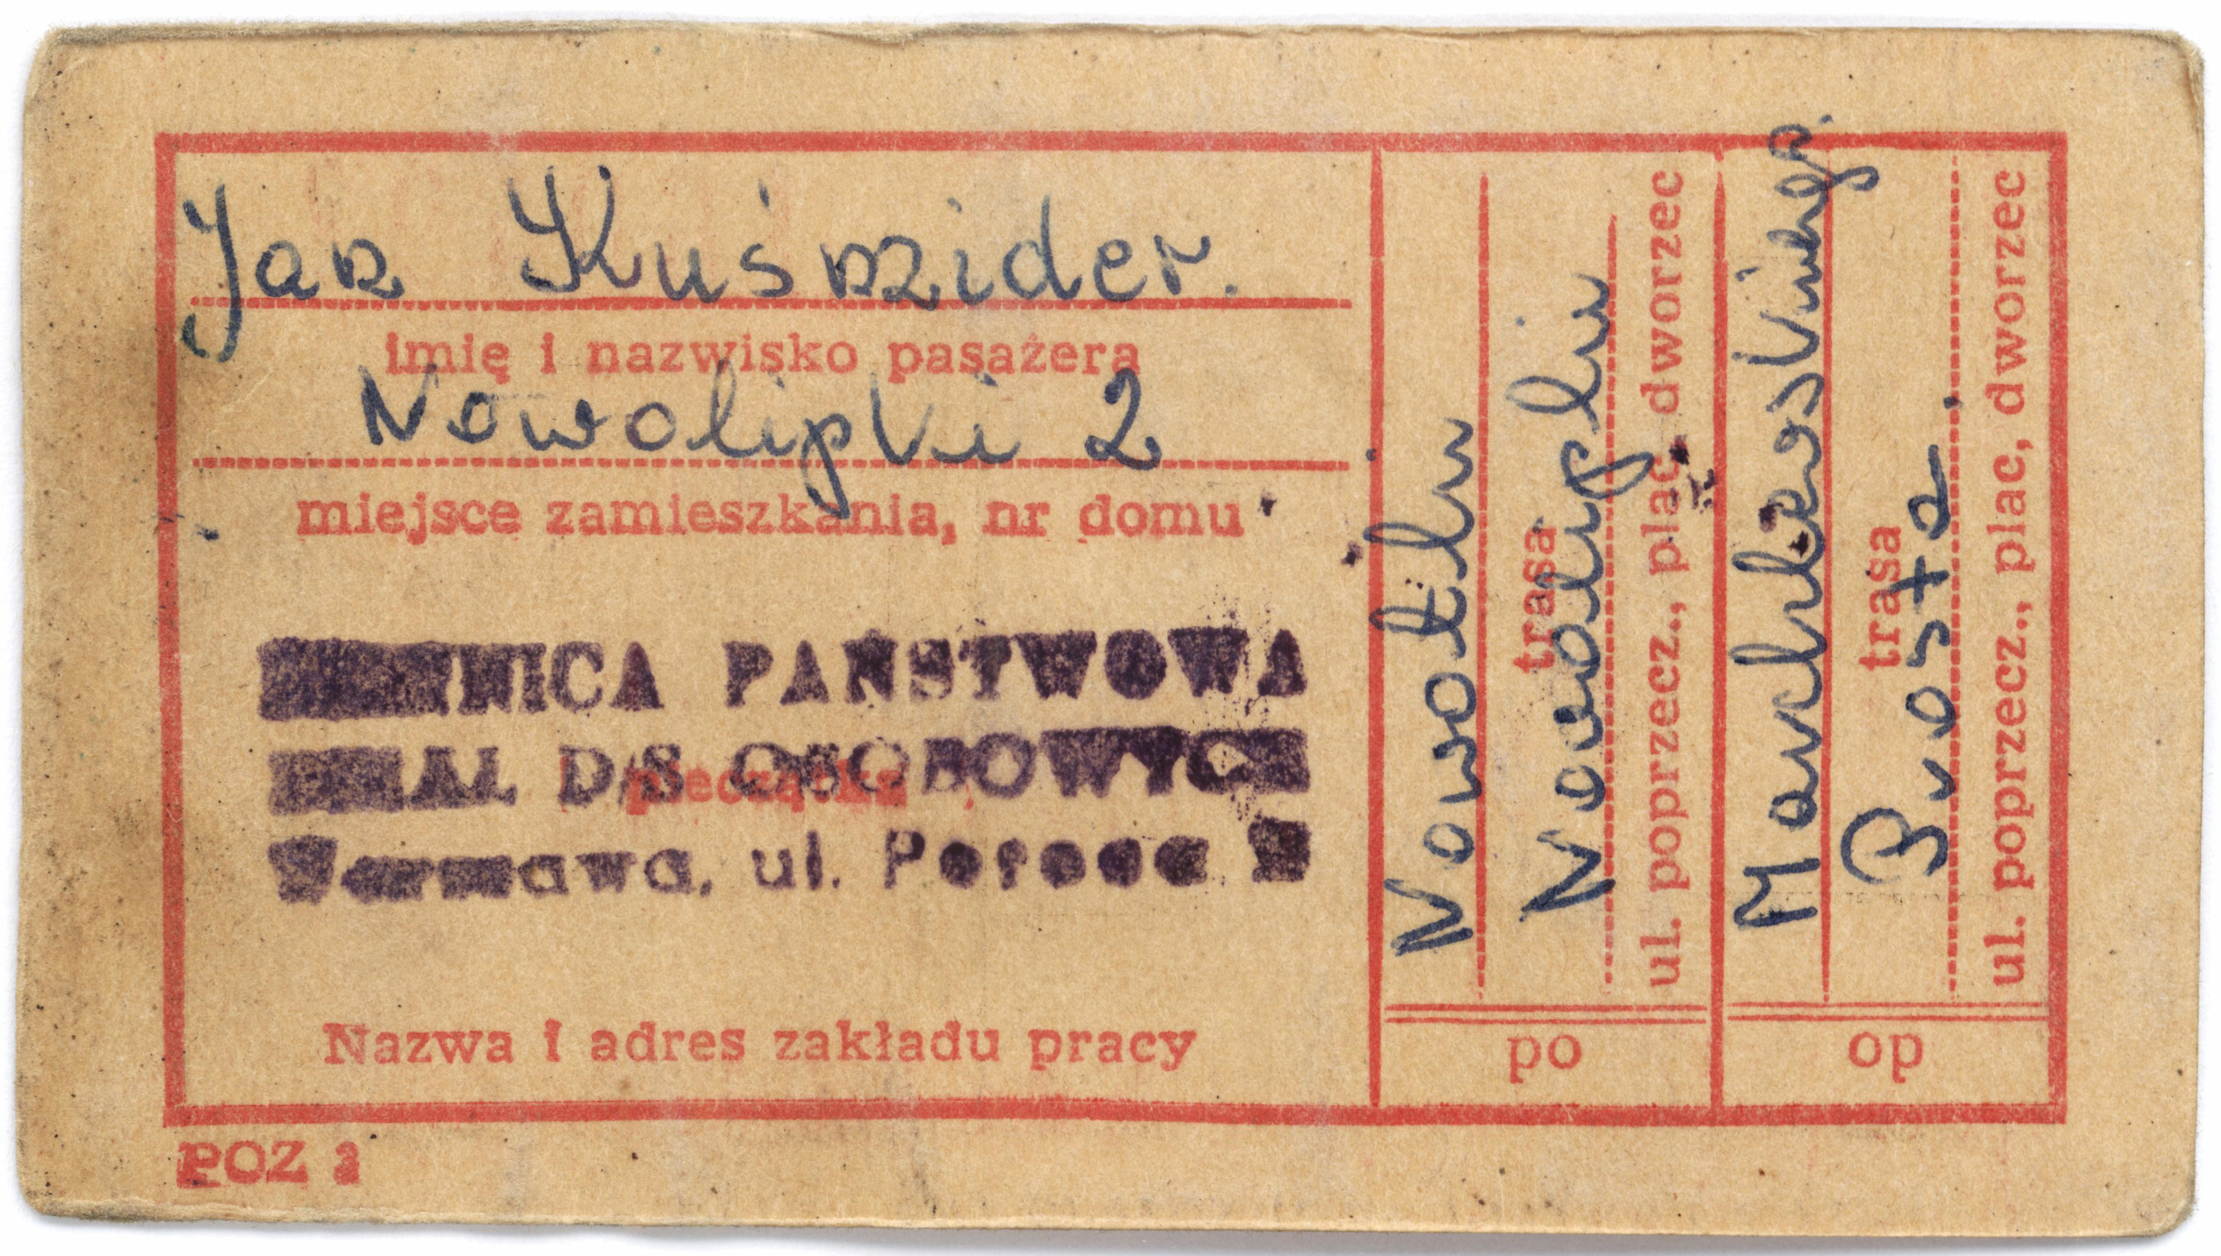 Jan Kuśnzider.
imię i nazwisko pasażera
Nowolipki 2
miejsce zamieszkania, nr domu
MENNICA PAŃSTWOWA
DZIAŁ D/S OSOBOWYCH
pieczątka
Warszawa, ul. Pereca
Nazwa i adres zakładu pracy
POZ
Nowotki
trasa
Nowolipki
ul. poprzecz., plac, dworzec
po
Marchlewskiego.
trasa
Prosta.
ul. poprzecz., plac, dworzec
op